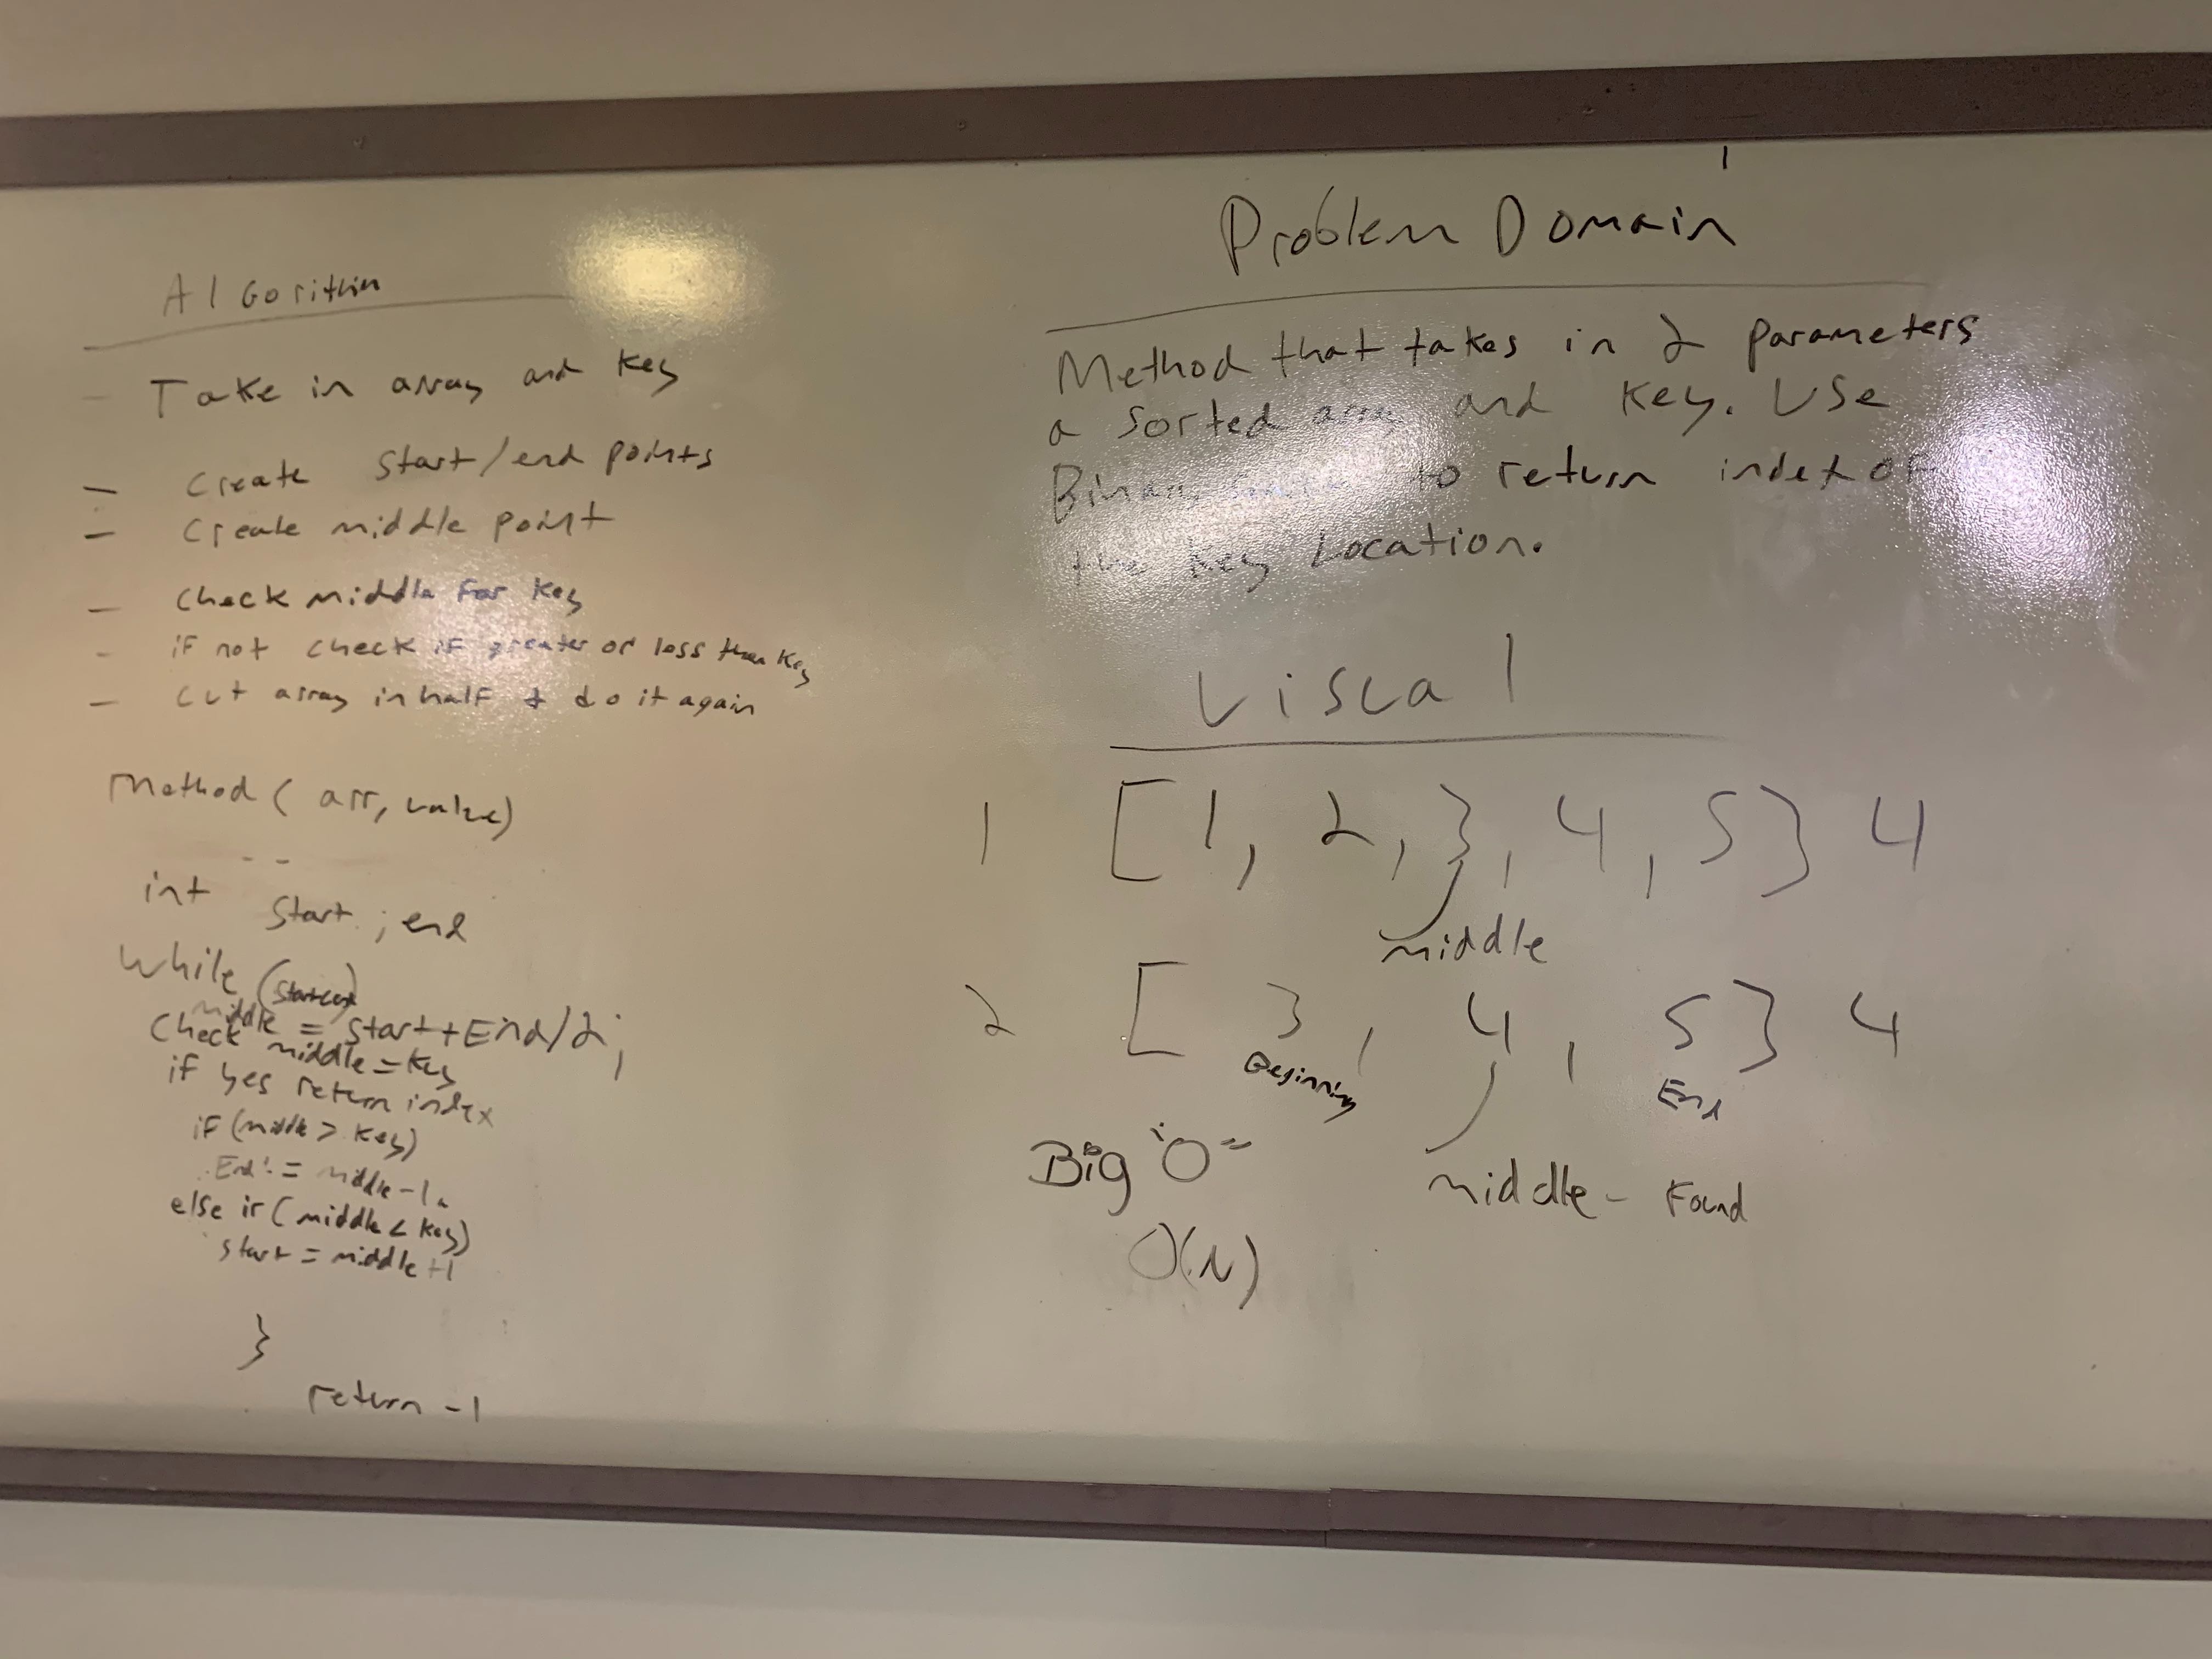 AlGorithm
- Take in array and key
- Create start/end points
- Create middle point
- Check middle for key
- if not check if greater or less than key
- cut array in half & do it again
Method ( arr, value)
int start ; end
while (
middle = start + End/2;
Check middle = key
if yes return index
if (middle > key)
End = middle -1
else if ( middle < key)
start = middle +1
}
return -1
Problem Domain
Method that takes in 2 parameters
a sorted array and key. Use
Binary to return index of
the key Location.
Visual
1 [1, 2, 3, 4, 5] 4
middle
2 [ 3, 4, 5] 4
Beginning End
middle - Found
Big "O"
O(N)